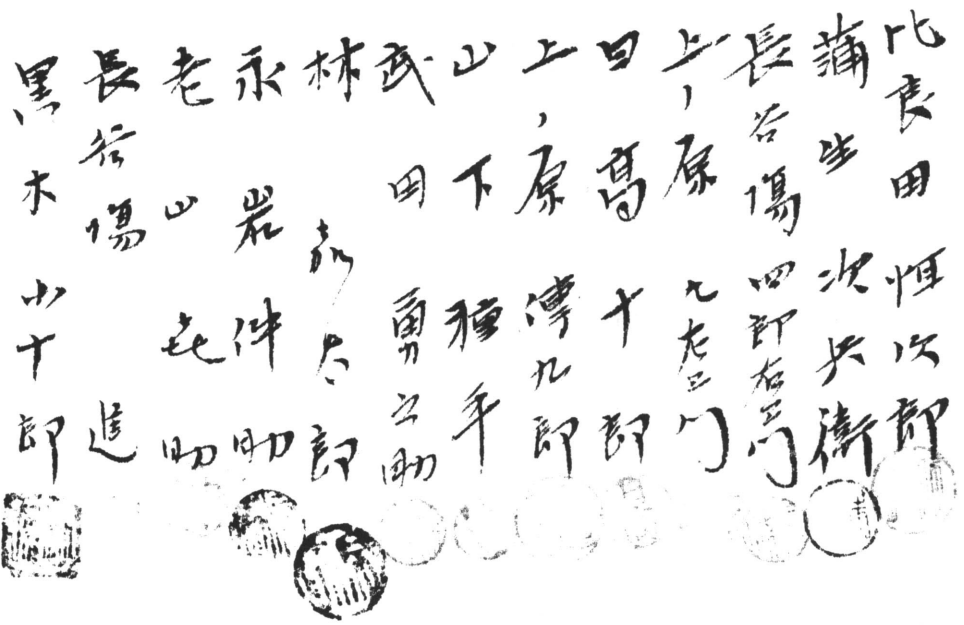 比良田恒次郎
蒲生次兵衛
長谷場四郎右ヱ門
上ノ原九左ヱ門
日高十郎
上ノ原傳九郎
山下種平
武田勇之助
林嘉太郎
永岩伴助
老山七助
長谷場進
黒木小十郎